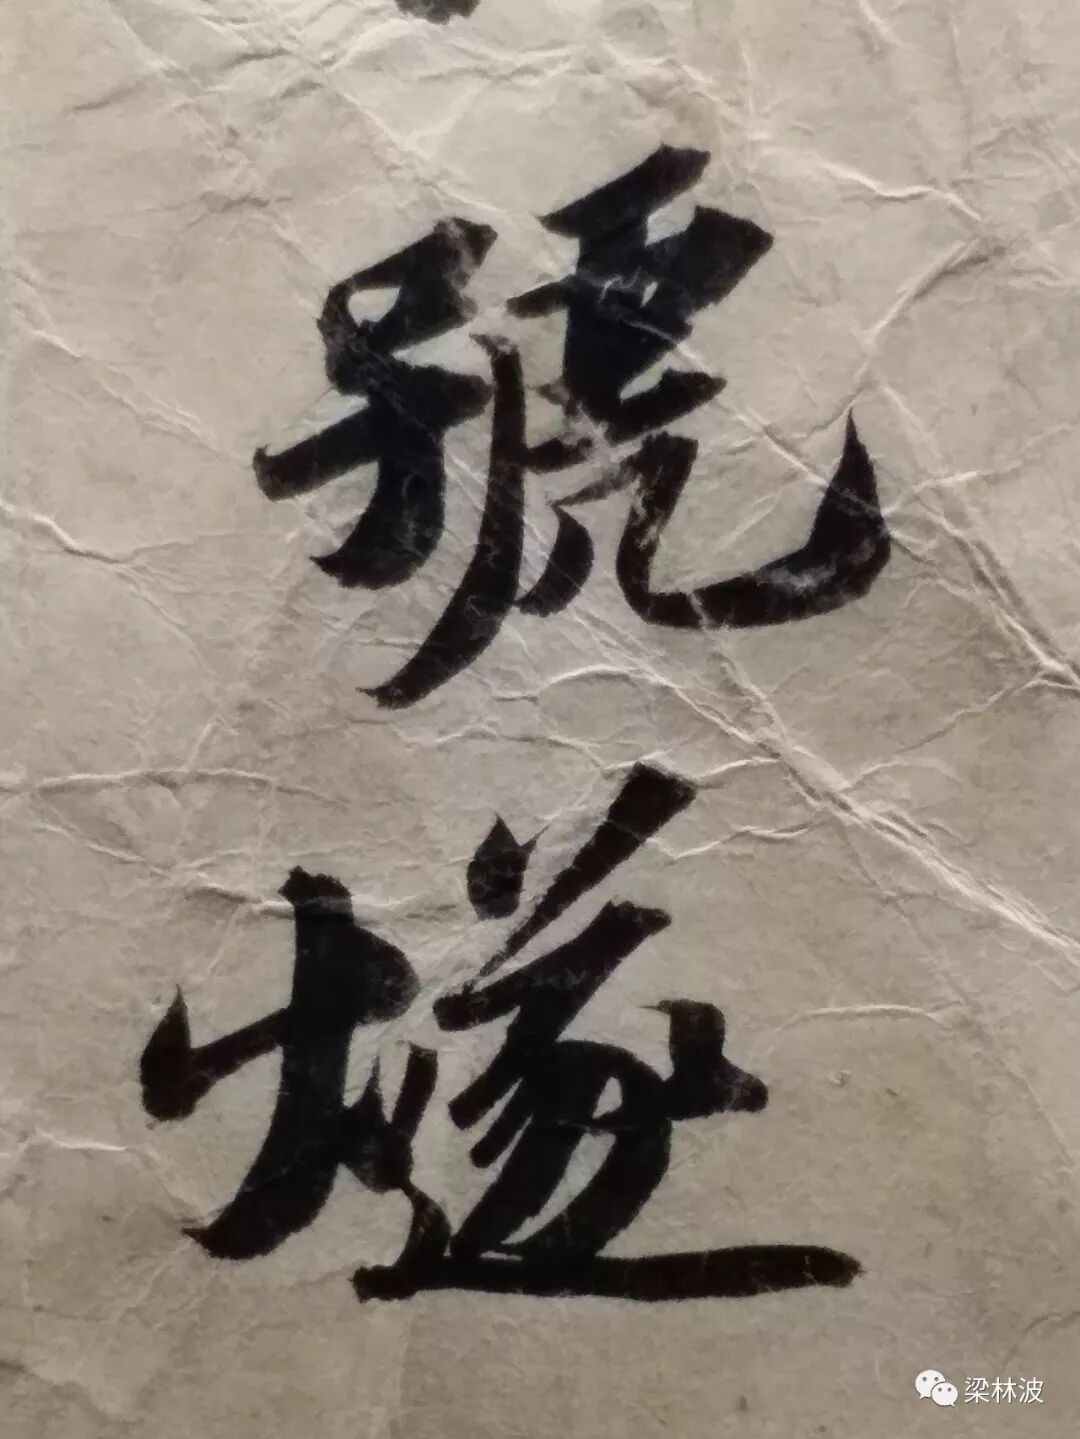 號
燧
梁林波